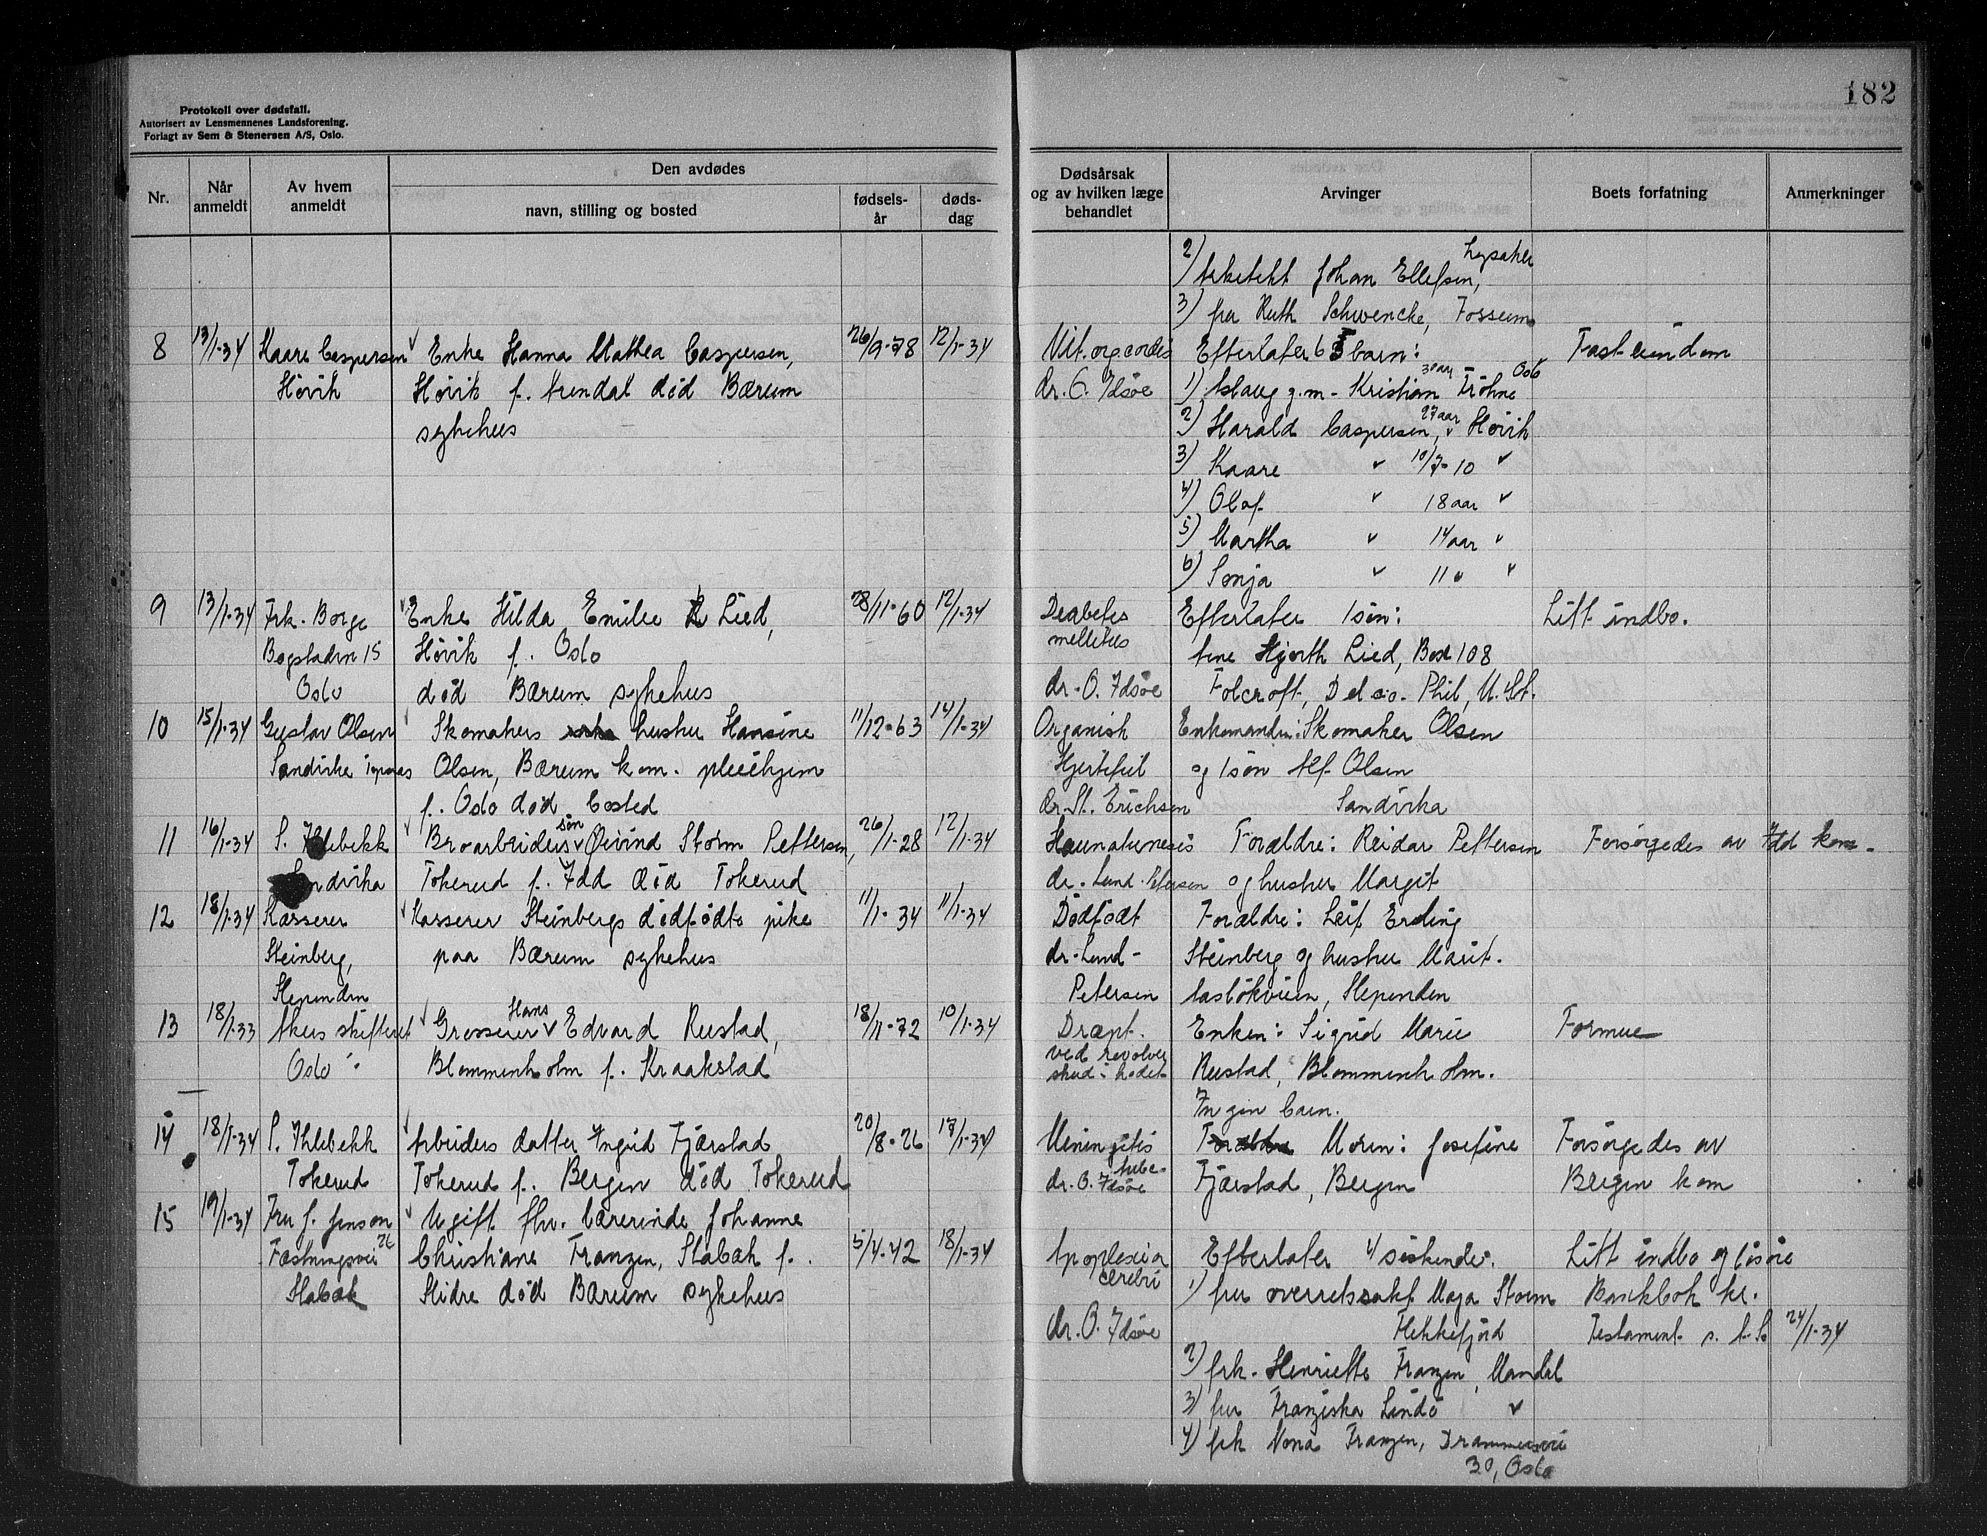 Protokoll over dødsfall.
Autorisert av Lensmennenes Landsforening.
Forlagt av Sem & Stenersen A/S, Oslo.
182
Nr.
Når anmeldt
Av hvem anmeldt
Den avdødes
navn, stilling og bosted
fødsels-år
døds-dag
Dødsårsak og av hvilken læge behandlet
Arvinger
Boets forfatning
Anmerkninger
2) Arkitekt Johan Ellefsen, Lysaker
3) fru Ruth Schwencke, Fossum
8 13/1-34 Kaare Caspersen Enke Hanna Mathea Caspersen, 26/9-78 12/1-34 Vit. org. cordis Efterlater 6 barn: Fast eiendom
Høvik Høvik f. Arendal død Bærum dr. O. Idsøe 1) Aslaug g.m. Kristian Frøhne 30 aar Oslo
sykehus 2) Harald Caspersen, 27 aar Høvik
3) Kaare " 10/7-10 "
4) Olaf " 18 aar "
5) Martha " 14 aar "
6) Sonja " 11 " "
9 13/1-34 Frk. Borge Enke Hilda Emilie Lied, 28/11-60 12/1-34 Deabetes Efterlater 1 søn: Litt indbo.
Bogstadvn 15 Høvik f. Oslo mellitus Arne Hjorth Lied, Box 108
Oslo død Bærum sykehus dr. O. Idsøe Folcroft, Del. co. Phil, U. St.
10 15/1-34 Gustav Olsen Skomakers hustru Hansine 11/12-63 14/1-34 Organisk Enkemanden: Skomaker Olsen
Sandvika Olsen, Bærum kom. pleiehjem Hjertefeil og 1 søn Alf Olsen
f. Oslo død bosted dr. St. Erichsen Sandvika
11 16/1-34 S. Ihlebekk Broarbeiders søn Øivind Storm Pettersen, 26/1-28 12/1-34 Forældre: Reidar Pettersen Forsørgedes av Idd kom.
Sandvika Tokerud f. Idd død Tokerud dr. Lund-Petersen og hustru Margit
12 18/1-34 Kasserer Kasserer Steinbergs dødfødte pike 11/1-34 11/1-34 Dødfødt Forældre: Leif Erling
Steinberg, paa Bærum sykehus dr. Lund- Steinberg og hustru Marit.
Slependen Petersen Slependen
13 18/1-33 Akers skifteret Grosserer Hans Edvard Rustad, 18/11-72 10/1-34 Dræpt. Enken: Sigrid Marie Formue
Oslo Blommenholm f. Kraakstad ved revolver Rustad, Blommenholm.
skud i hodet
Ingen barn.
14 18/1-34 S. Ihlebekk Arbeiders datter Ingrid Fjærstad 20/8-26 17/1-34 Meningitis Moren: Josefine Forsørgedes av
Tokerud Tokerud f. Bergen død Tokerud tube. dr. O. Idsøe Fjærstad, Bergen Bergen kom
15 19/1-34 Fru J. Jensen Ugift fhv. lærerinde Johanne
Fæstningsvei Christiane Franzen, Stabæk f. 5/4-42 18/1-34 Apoplexia Efterlater 4 søskende: Litt indbo og løsøre
Stabæk Slidre død Bærum sykehus cerebri 1) fru overretssakf. Maja Storm Bankbok kr.
dr. O. Idsøe Flekkefjord Testament 24/1-34
2) frk. Henriette Franzen, Mandal
3) fru Franziska Lindø "
4) frk Nona Franzen, Drammensvei
30, Oslo